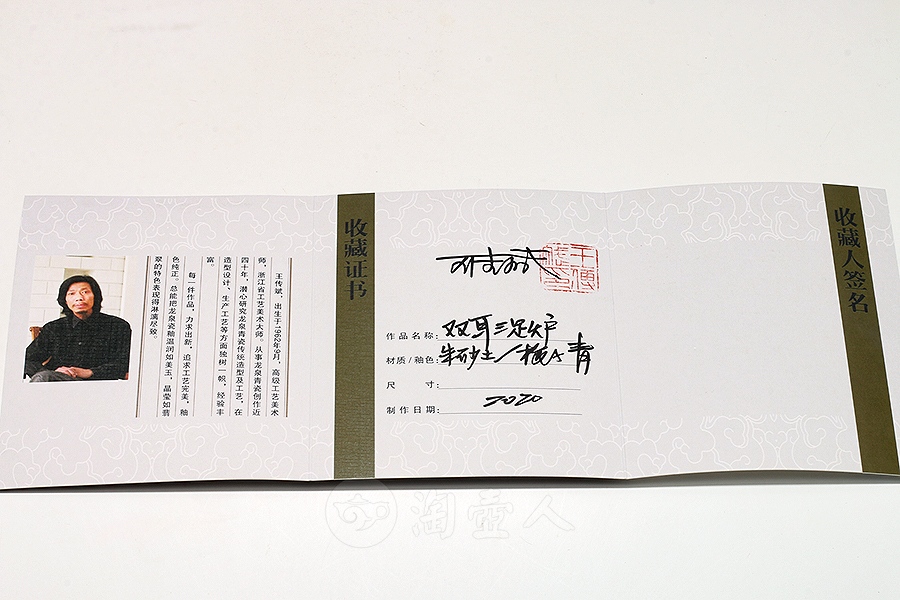 王传斌，出生于1962年9月，高级工艺美术
师，浙江省工艺美术大师。从事龙泉青瓷创作近
四十年，潜心研究龙泉青瓷传统造型及工艺，在
造型设计、生产工艺等方面独树一帜，经验丰
富。
每一件作品，力求出新，追求工艺完美，釉
色纯正。总能把龙泉瓷釉温润如美玉，晶莹如翡
翠的特色表现得淋漓尽致。
收藏证书
作品名称：双耳三足炉
材质/釉色：朱砂土/梅子青
尺 寸：
制作日期：2020
收藏人签名
淘壶人